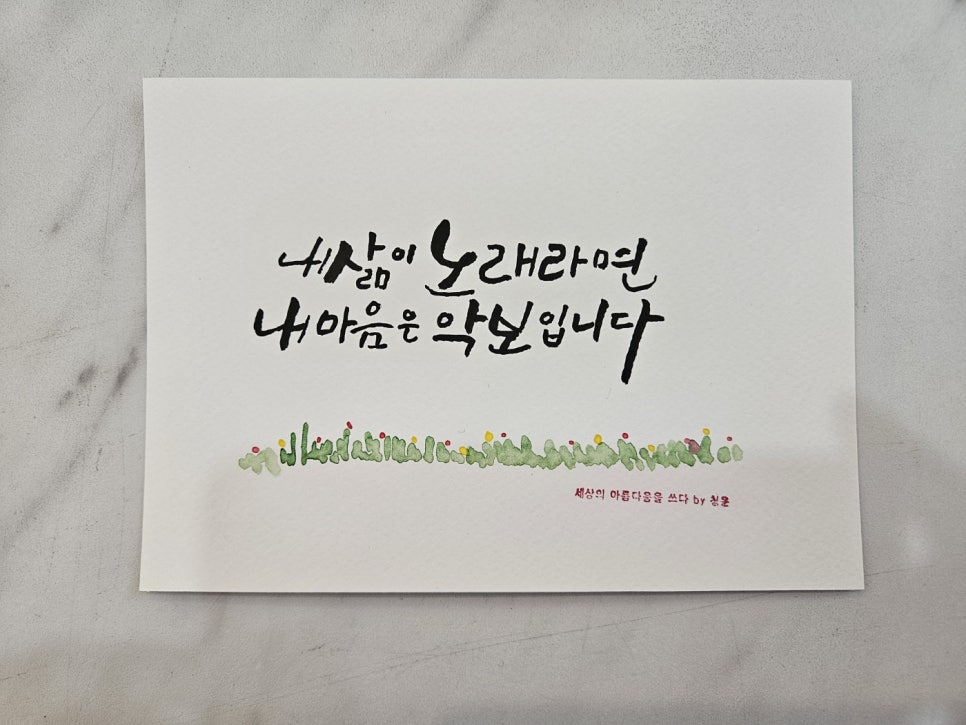 내 삶이 노래라면
내 마음은 악보입니다
세상의 아름다움을 쓰다 by 청운